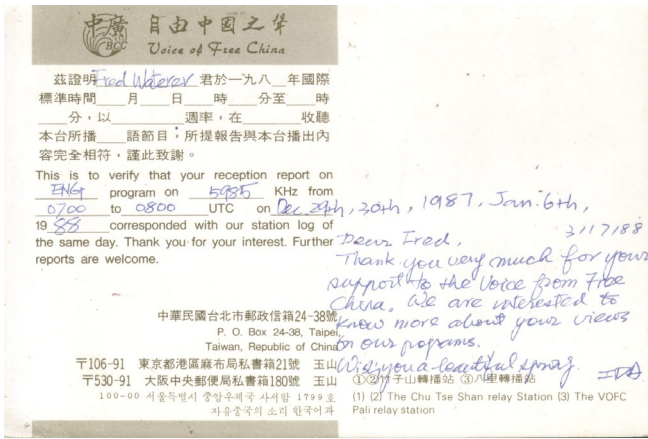 中廣 自由中國之聲
BCC Voice of Free China
茲證明 Fred Waterer 君於一九八__年國際
標準時間___月___日___時___分至___時
___分，以______週率，在______收聽
本台所播____語節目；所提報告與本台播出內
容完全相符，謹此致謝。
This is to verify that your reception report on
ENG program on 5985 KHz from
0700 to 0800 UTC on Dec. 29th, 30th, 1987, Jan. 6th,
1988 corresponded with our station log of
the same day. Thank you for your interest. Further
reports are welcome.
3/17/88
Dear Fred,
Thank you very much for your
support to the Voice from Free
China. We are interested to
know more about your views
on our programs.
Wish you a beautiful spring.
中華民國台北市郵政信箱24-38號
P. O. Box 24-38, Taipei,
Taiwan, Republic of China
〒106-91 東京都港區麻布局私書箱21號 玉山
〒530-91 大阪中央郵便局私書箱180號 玉山
100-00 서울특별시 중앙우체국 사서함 1799호
자유중국의 소리 한국어과
①②竹子山轉播站 ③八里轉播站
(1) (2) The Chu Tse Shan relay Station (3) The VOFC
Pali relay station